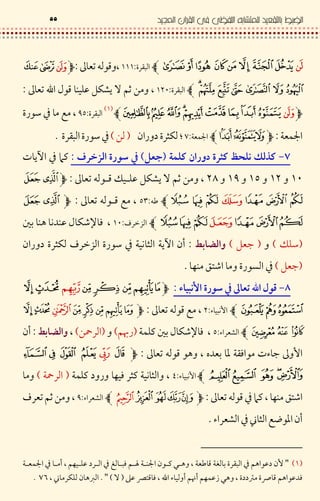 الضبط بالتقعيد للمتشابه اللفظي في القرآن المجيد ٥٥
لَن يَدْخُلَ الْجَنَّةَ إِلَّا مَن كَانَ هُودًا أَوْ نَصَارَىٰ ﴾ البقرة:١١١ ،وقوله تعالى : ﴿ وَلَن تَرْضَىٰ عَنكَ
الْيَهُودُ وَلَا النَّصَارَىٰ حَتَّىٰ تَتَّبِعَ مِلَّتَهُمْ ﴾ البقرة:١٢٠ ، ومن ثم لا يشكل علينا قول الله تعالى :
﴿ وَلَن يَتَمَنَّوْهُ أَبَدًا بِمَا قَدَّمَتْ أَيْدِيهِمْ وَاللَّهُ عَلِيمٌ بِالظَّالِمِينَ ﴾ (١) البقرة:٩٥ ، مع ما في سورة
الجمعة : ﴿ وَلَا يَتَمَنَّوْنَهُ أَبَدًا ﴾ الجمعة:٧ لكثرة دوران ( لن ) في سورة البقرة .
٧- كذلك نلحظ كثرة دوران كلمة (جعل) في سورة الزخرف : كما في الآيات
١٠ و ١٢ و ١٥ و ١٩ و ٢٨ ، ومن ثم لا يشكل عليك قوله تعالى : ﴿ الَّذِي جَعَلَ
لَكُمُ الْأَرْضَ مَهْدًا وَسَلَكَ لَكُمْ فِيهَا سُبُلًا ﴾ طه:٥٣ ، مع قوله تعالى : ﴿ الَّذِي جَعَلَ
لَكُمُ الْأَرْضَ مَهْدًا وَجَعَلَ لَكُمْ فِيهَا سُبُلًا ﴾ الزخرف:١٠ ، فالإشكال عندنا هنا بين
(سلك ) و ( جعل ) والضابط : أن الآية الثانية في سورة الزخرف لكثرة دوران
(جعل ) في السورة وما اشتق منها .
٨- قول الله تعالى في سورة الأنبياء : ﴿ مَا يَأْتِيهِم مِّن ذِكْرٍ مِّن رَّبِّهِم مُّحْدَثٍ إِلَّا
اسْتَمَعُوهُ وَهُمْ يَلْعَبُونَ ﴾ الأنبياء:٢ ، مع قوله تعالى : ﴿ وَمَا يَأْتِيهِم مِّن ذِكْرٍ مِّنَ الرَّحْمَٰنِ مُحْدَثٍ إِلَّا
كَانُوا عَنْهُ مُعْرِضِينَ ﴾ الشعراء:٥ ، فالإشكال بين كلمة (ربهم) و (الرحمن) ، والضابط : أن
الأولى جاءت موافقة لما بعده ، وهو قوله تعالى : ﴿ قَالَ رَبِّي يَعْلَمُ الْقَوْلَ فِي السَّمَاءِ
وَالْأَرْضِ وَهُوَ السَّمِيعُ الْعَلِيمُ ﴾ الأنبياء:٤ ، والثانية كثر فيها ورود كلمة ( الرحمة ) وما
اشتق منها ، كما في قوله تعالى : ﴿ وَإِنَّ رَبَّكَ لَهُوَ الْعَزِيزُ الرَّحِيمُ ﴾ الشعراء:٩ ، ومن ثم تعرف
أن الموضع الثاني في الشعراء .
(١) " لأن دعواهم في البقرة بالغة قاطعة ، وهي كون الجنة لهم فبالغ في الرد عليهم ، أما في الجمعة
فدعواهم قاصرة مترددة ، وهي زعمهم أنهم أولياء الله ، فاقتصر على ( لا ) " . البرهان للكرماني ، ٧٦ .